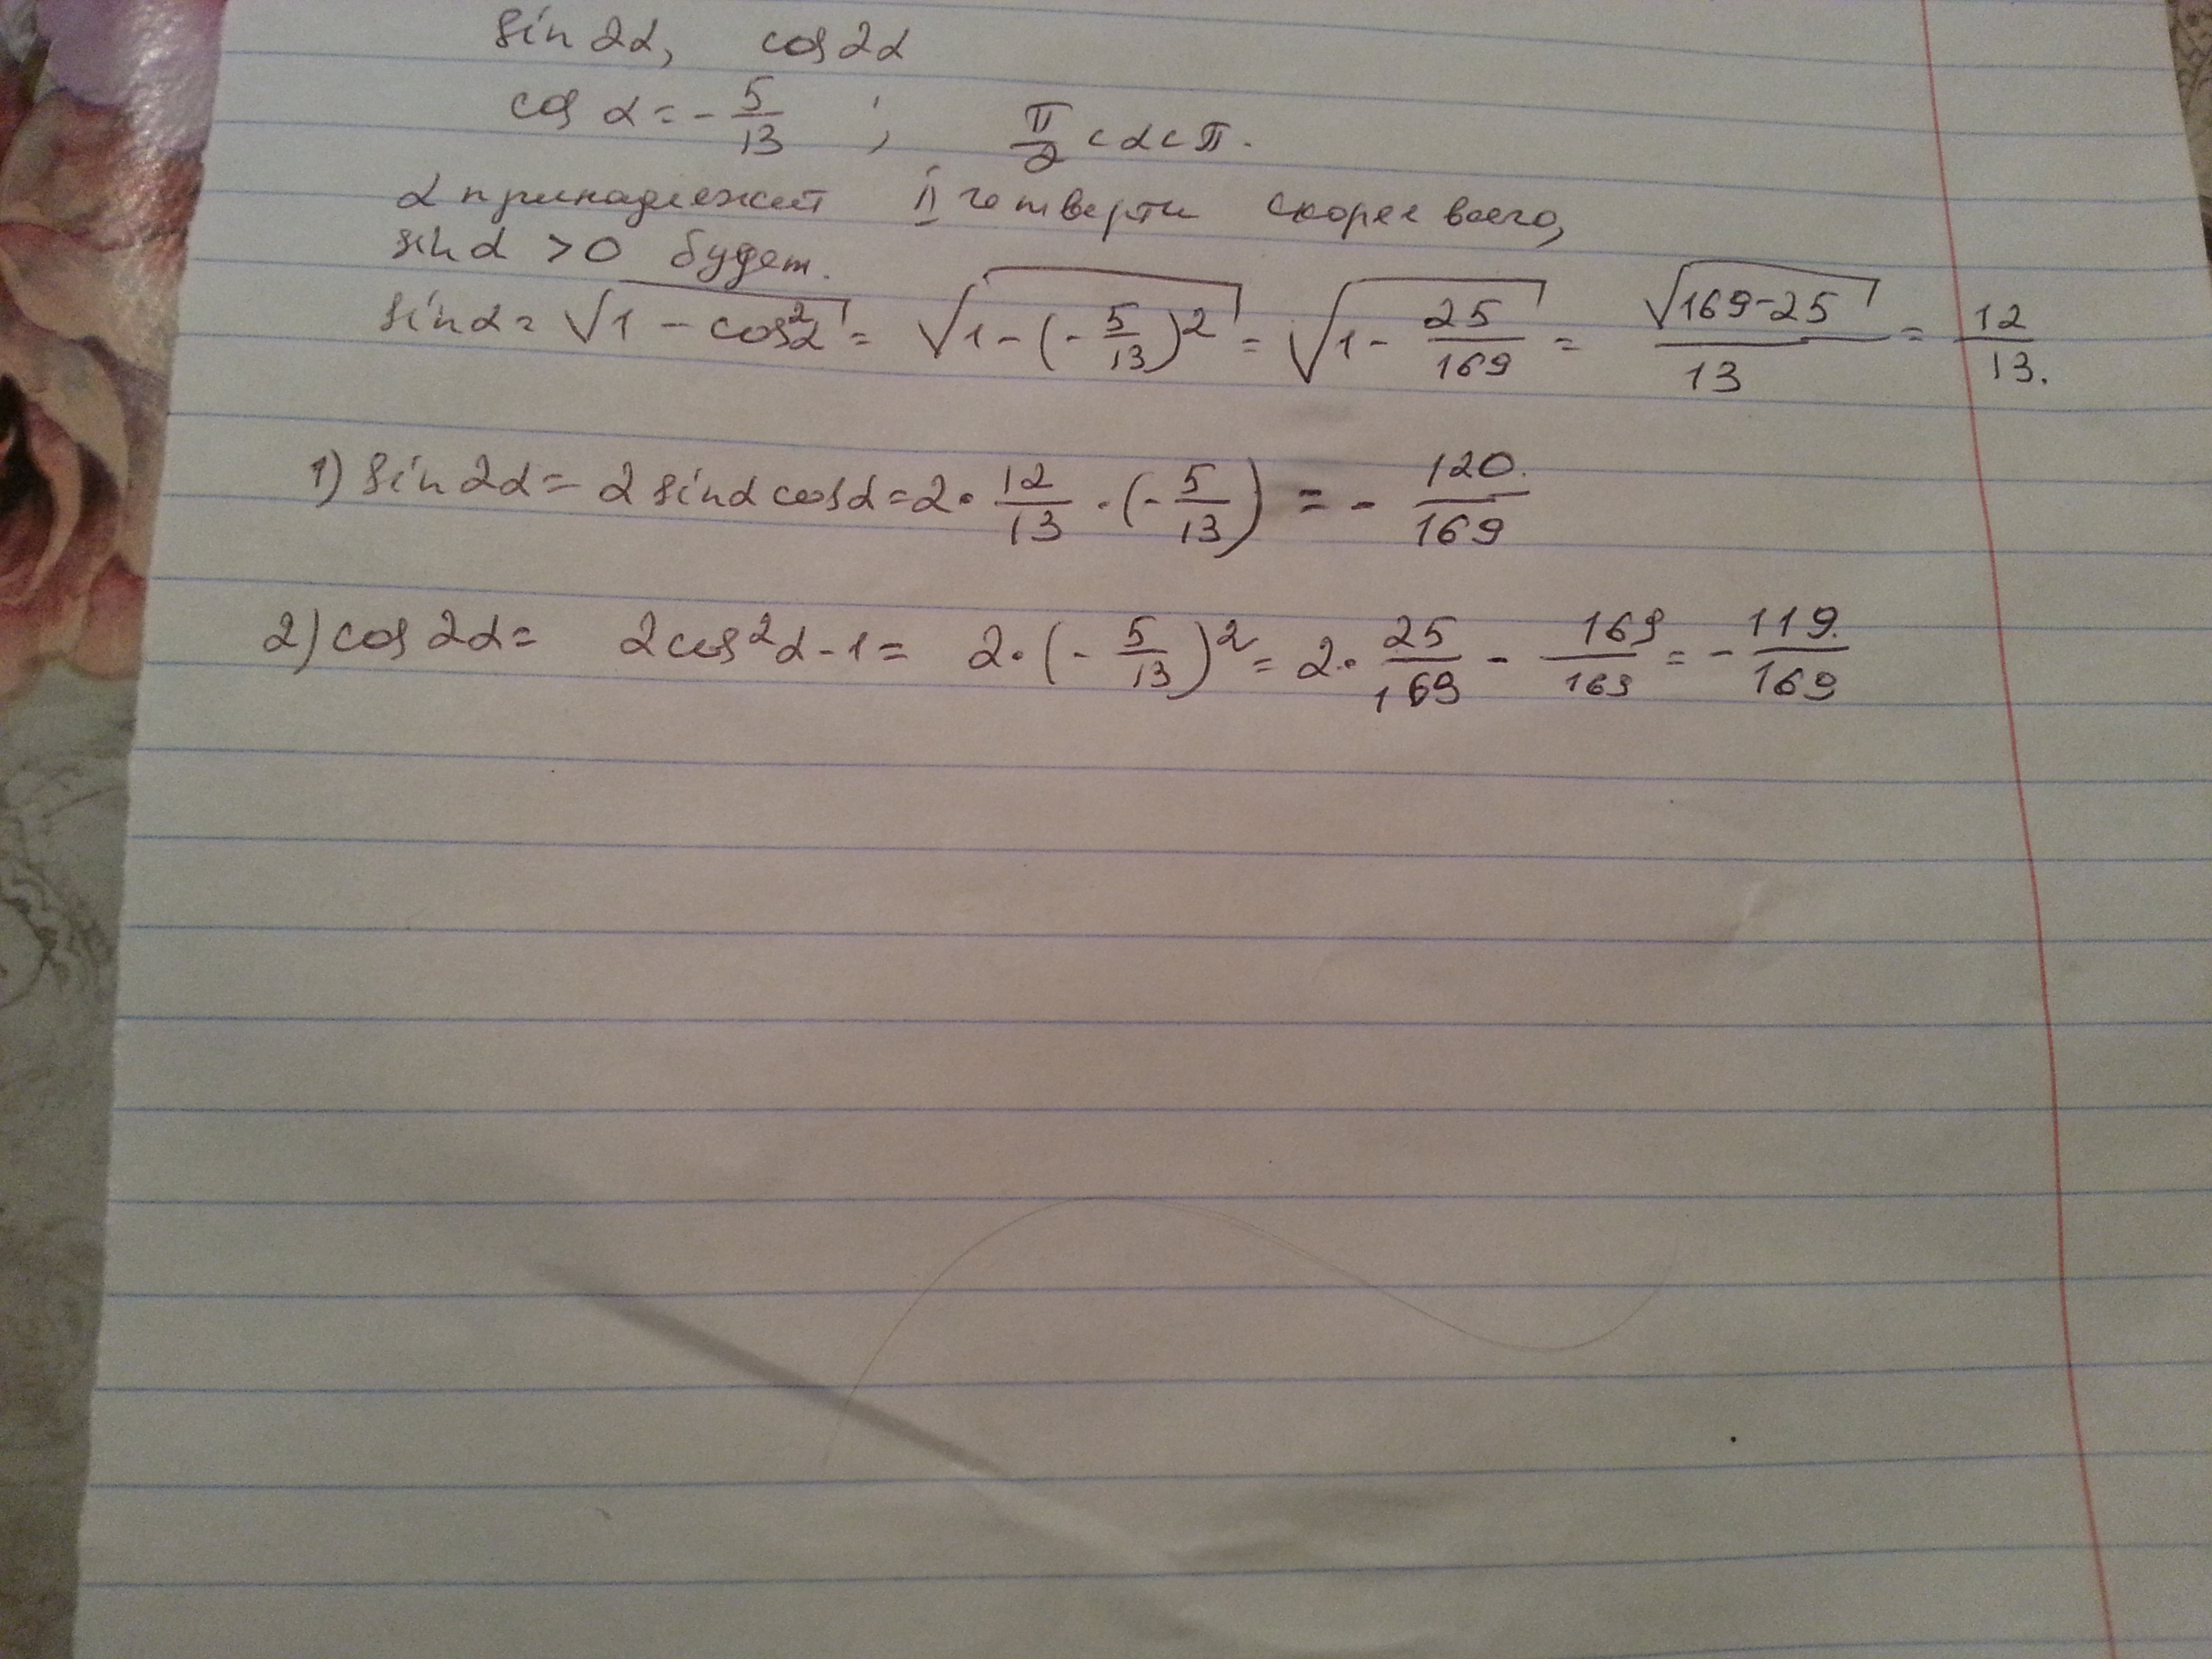 sin 2α, cos 2α
cos α = - 5/13 ; π/2 < α < π.
α принадлежит II четверти скорее всего,
sin α > 0 будет.
sin α = √(1 - cos²α) = √(1 - (- 5/13)²) = √(1 - 25/169) = √(169-25)/13 = 12/13.
1) sin 2α = 2 sin α cos α = 2 · 12/13 · (- 5/13) = - 120/169.
2) cos 2α = 2cos²α - 1 = 2 · (- 5/13)² = 2 · 25/169 - 169/169 = - 119/169.